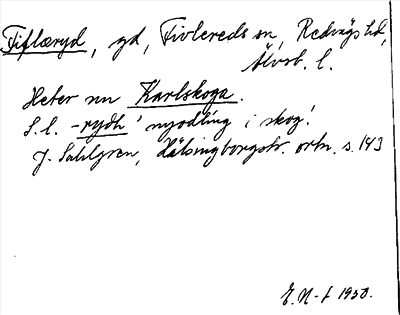 Tiflæryd, gd, Tivlereds sn, Redvägs hd,
Älvsb. l.
Heter nu Karlskoga.
S.l. -rydh 'nyodling i skog'.
J. Sahlgren, Hälsingborgstr. ortn. s. 143
E. N-t 1950.